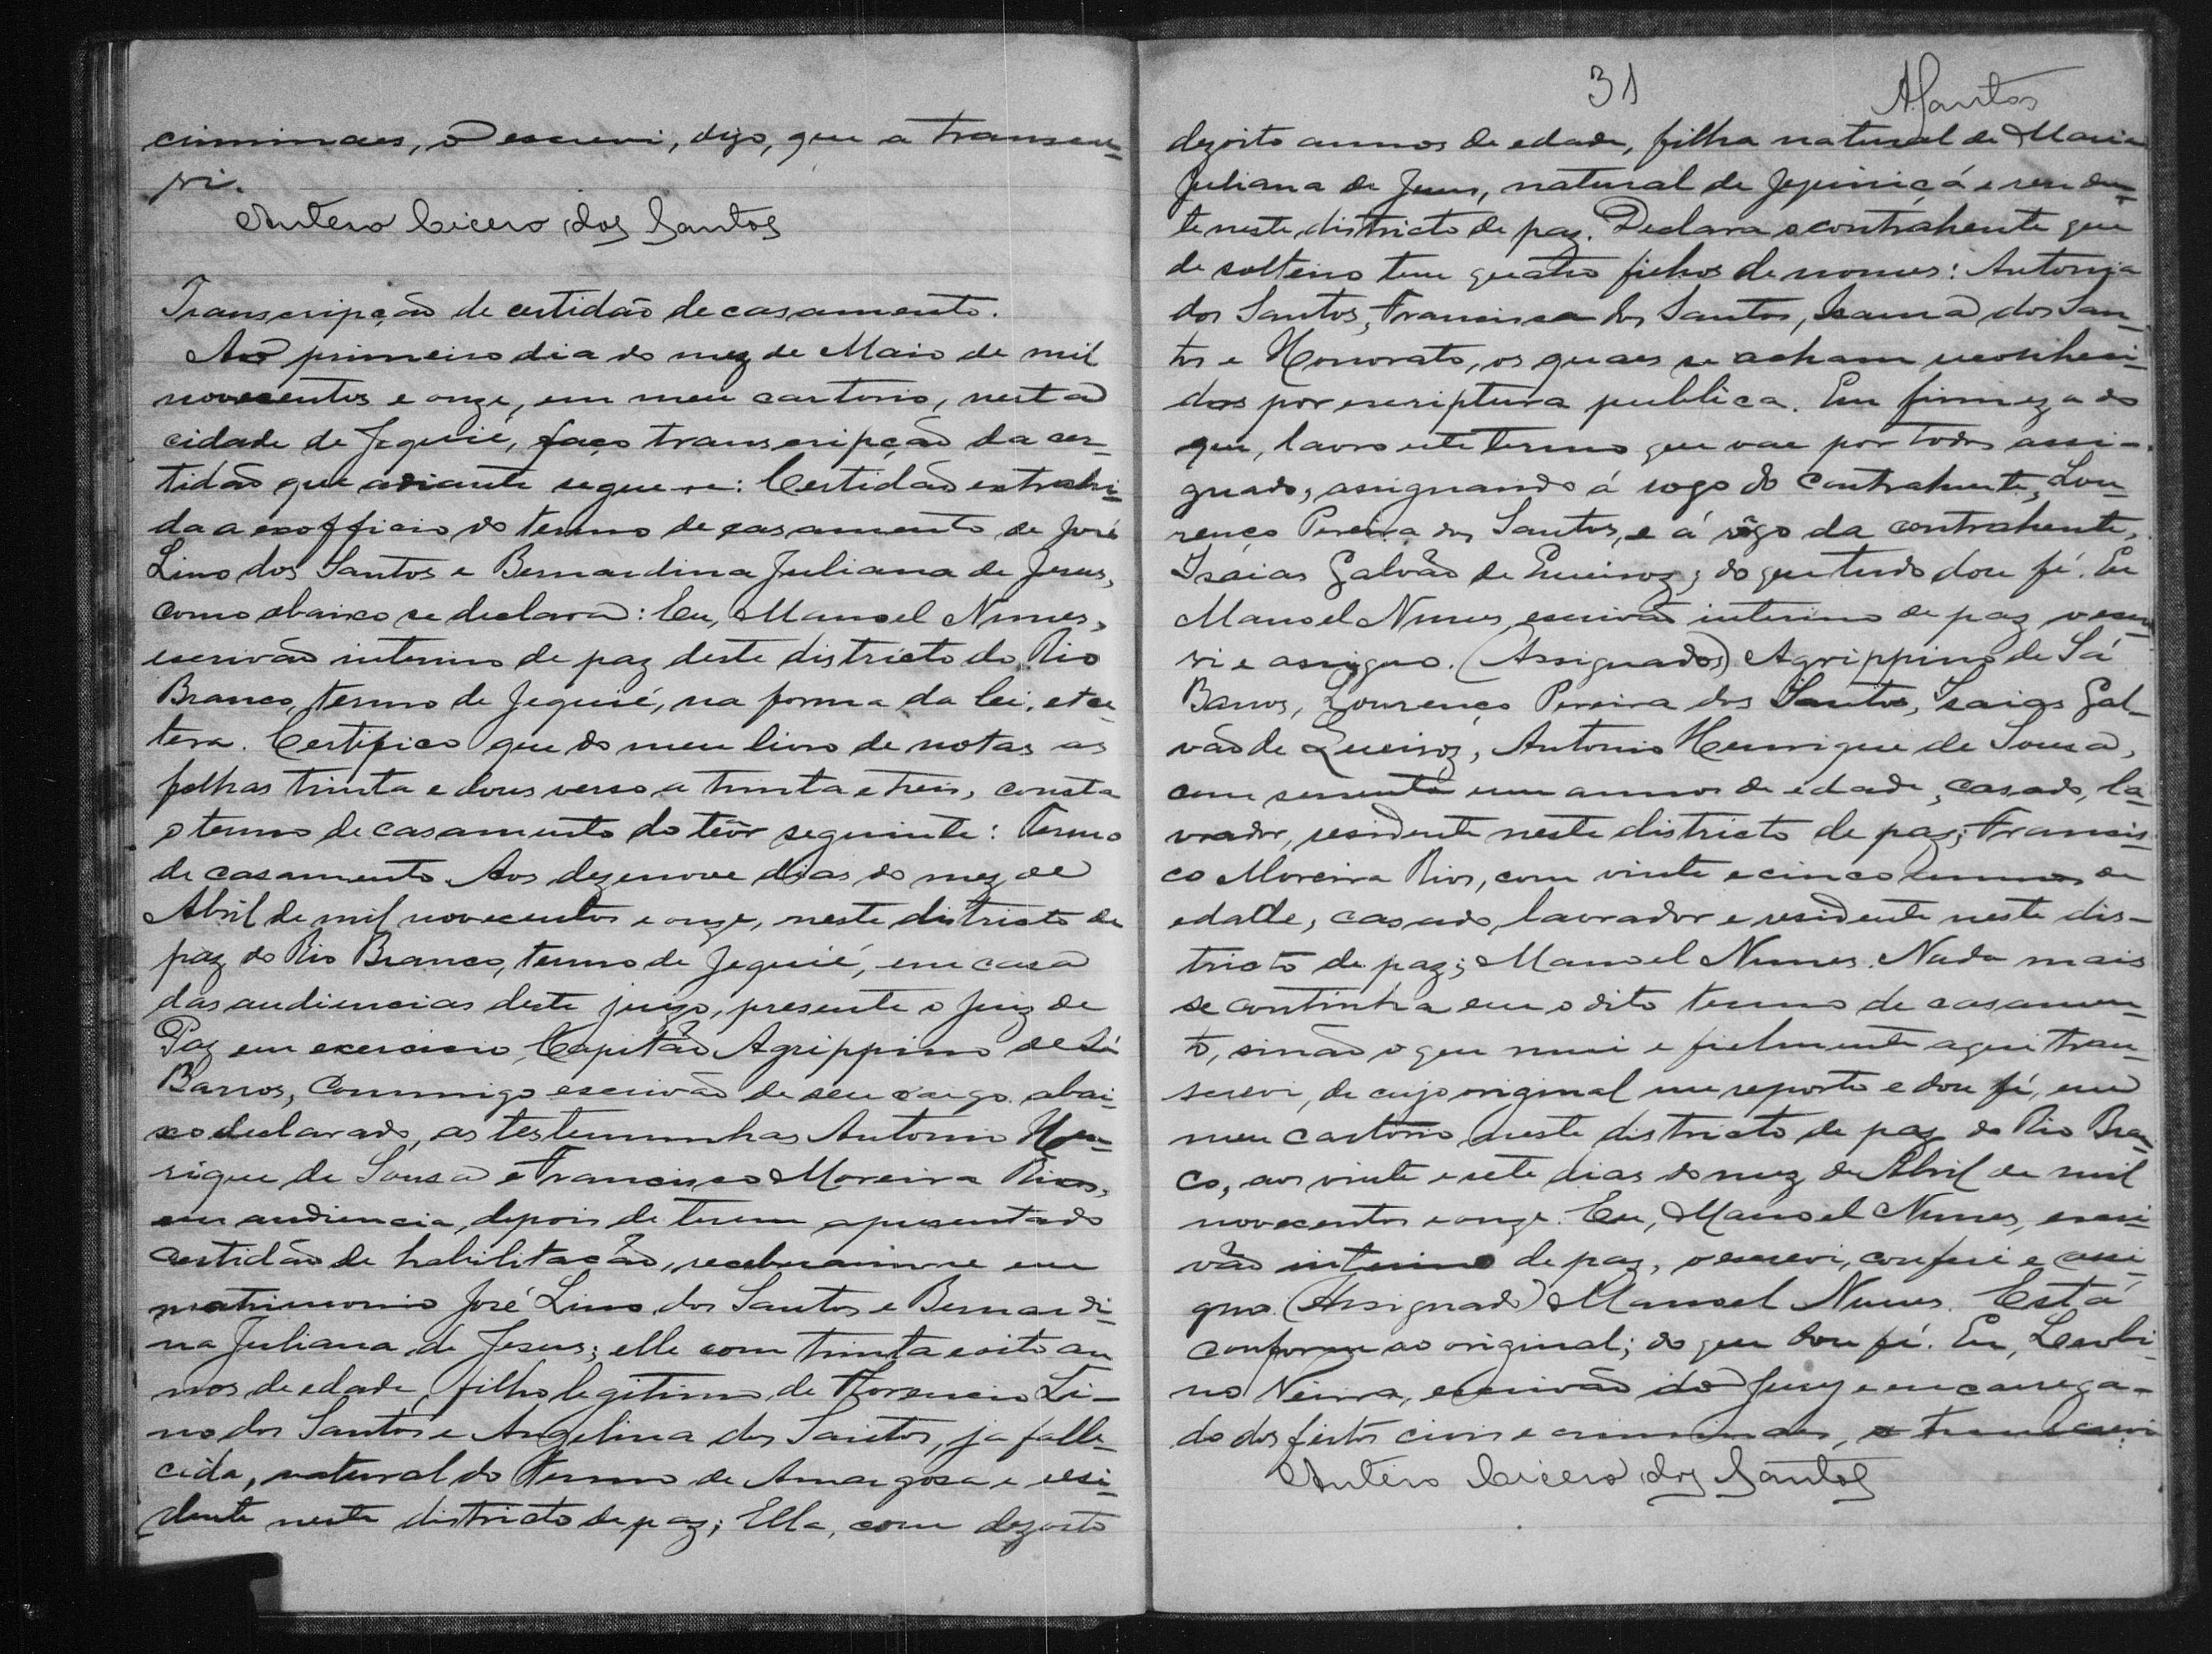 criminaes, o escrevi, digo, que a transcre-
vi.
Antero Cicero dos Santos
Transcripção de certidão de casamento.
Ao primeiro dia do mez de Maio de mil
novecentos e onze, em meu cartorio, nesta
cidade de Jequié, faço transcripção da cer-
tidão que adiante segue-se: Certidão extrahi-
da a exofficio do termo de casamento de José
Lino dos Santos e Bernardina Juliana de Jesus,
como abaixo se declara: Eu, Manoel Nunes,
escrivão interino de paz deste districto do Rio
Branco, termo de Jequié, na forma da lei, etce-
tera. Certifico que do meu livro de notas as
folhas trinta e dous verso a trinta e tres, consta
o termo de casamento do teôr seguinte: Termo
de casamento. Aos dezenove dias do mez de
Abril de mil novecentos e onze, neste districto de
paz do Rio Branco, termo de Jequié, em casa
das audiencias deste juizo, presente o Juiz de
Paz em exercicio, Capitão Agrippino de Sá
Barros, commigo escrivão de seu cargo abai-
xo declarado, as testemunhas Antonio Hen-
rique de Sousa e Francisco Moreira Rios,
em audiencia, depois de terem apresentado
certidão de habilitação, receberam-se em
matrimonio José Lino dos Santos e Bernardi-
na Juliana de Jesus; elle com trinta e oito an
nos de edade, filho legitimo de Florencio Li-
no dos Santos e Angelina dos Santos, ja falle-
cida, natural do termo de Amargosa e resi-
dente neste districto de paz; Ella, com dezoito
31 ASantos
dezoito annos de edade, filha natural de Maria
Juliana de Jesus, natural de Jequiriçá e residen-
te neste districto de paz. Declara o contrahente que
de solteiro tem quatro filhos de nomes: Antonia
dos Santos, Francisca dos Santos, dos San-
tos e Honorato, os quaes se acham reconheci-
dos por escriptura publica. Em firmeza do
que, lavro este termo que vae por todos assi-
gnado, assignando á rogo do contrahente, Lou-
renço Pereira dos Santos, e á rôgo da contrahente,
Isaias Galvão de Queiroz; do que tudo dou fé. Eu
Manoel Nunes, escrivão interino de paz o escre
vi e assigno. (Assignados) Agrippino de Sá
Barros, Lourenço Pereira dos Santos, Isaias Gal-
vão de Queiroz, Antonio Henrique de Sousa,
com sessenta um annos de edade, casado, la-
vrador, residente neste districto de paz; Francis-
co Moreira Rios, com vinte e cinco annos de
edade, casado, lavrador e residente neste dis-
tricto de paz; Manoel Nunes. Nada mais
se continha em o dito termo de casamen-
to, sinão o que mui e fielmente aqui tran-
screvi, de cujo original me reporto e dou fé, em
meu cartorio neste districto de paz do Rio Bran
co, aos vinte e sete dias do mez de Abril de mil
novecentos e onze. Eu, Manoel Nunes, escri-
vão interino de paz, o escrevi, conferi e assi
gno. (Assignado) Manoel Nunes. Está
conforme ao original; do que dou fé. Eu, Leobi-
no Neiva, escrivão do Jury e encarrega-
do dos feitos civis e criminaes, o transcrevi.
Antero Cicero dos Santos